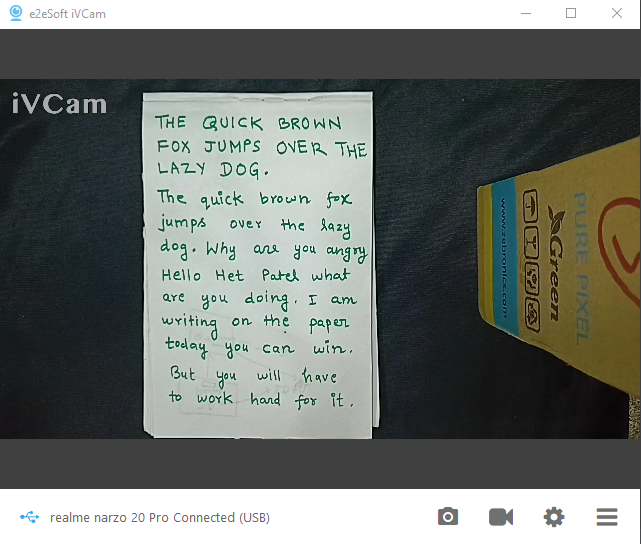 e2eSoft iVCam
iVCam
THE QUICK BROWN
FOX JUMPS OVER THE
LAZY DOG.
The quick brown fox
jumps over the lazy
dog. Why are you angry
Hello Het Patel what
are you doing. I am
writing on the paper
today you can win.
But you will have
to work hard for it.
PURE PIXEL
Green
www.zebronics.com
realme narzo 20 Pro Connected (USB)